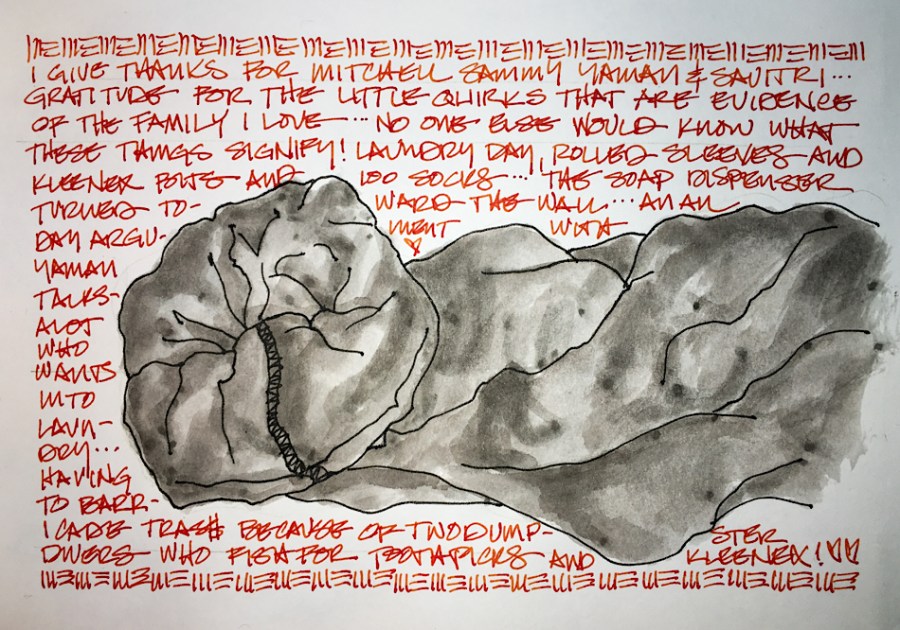 I GIVE THANKS FOR MITCHELL SAMMY YAMAN & SAVITRI...
GRATITUDE FOR THE LITTLE QUIRKS THAT ARE EVIDENCE
OF THE FAMILY I LOVE ... NO ONE ELSE WOULD KNOW WHAT
THESE THINGS SIGNIFY! LAUNDRY DAY, ROLLED SLEEVES AND
KLEENEX BITS AND 100 SOCKS... THE SOAP DISPENSER
TURNED TO- WARD THE WALL... AN ALL
DAY ARGU- MENT WITH
YAMAN
TALKS-
ALOT
WHO
WANTS
INTO
LAUN-
DRY...
HAVING
TO BARR-
ICADE TRASH BECAUSE OF TWO DUMP- STER
DIVERS WHO FISH FOR TOOTHPICKS AND KLEENEX!